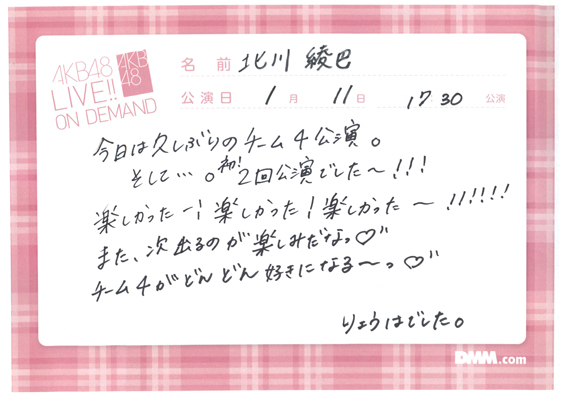 AKB48
LIVE!!
ON DEMAND
AKB
48
名前 北川 綾巴
公演日 1月 11日 17 30 公演
今日は久しぶりのチーム4公演。
そして…。初!2回公演でした〜!!!
楽しかったー!楽しかった!楽しかった〜!!!!!!
また、次出るのが楽しみだなっ♡"
チーム4がどんどん好きになる〜っ♡"
りょうはでした。
DMM.com